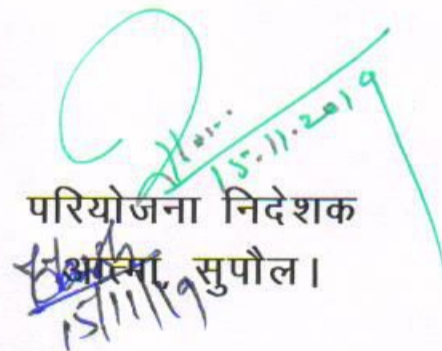 15.11.2019
परियोजना निदेशक
आत्मा, सुपौल।
15/11/19